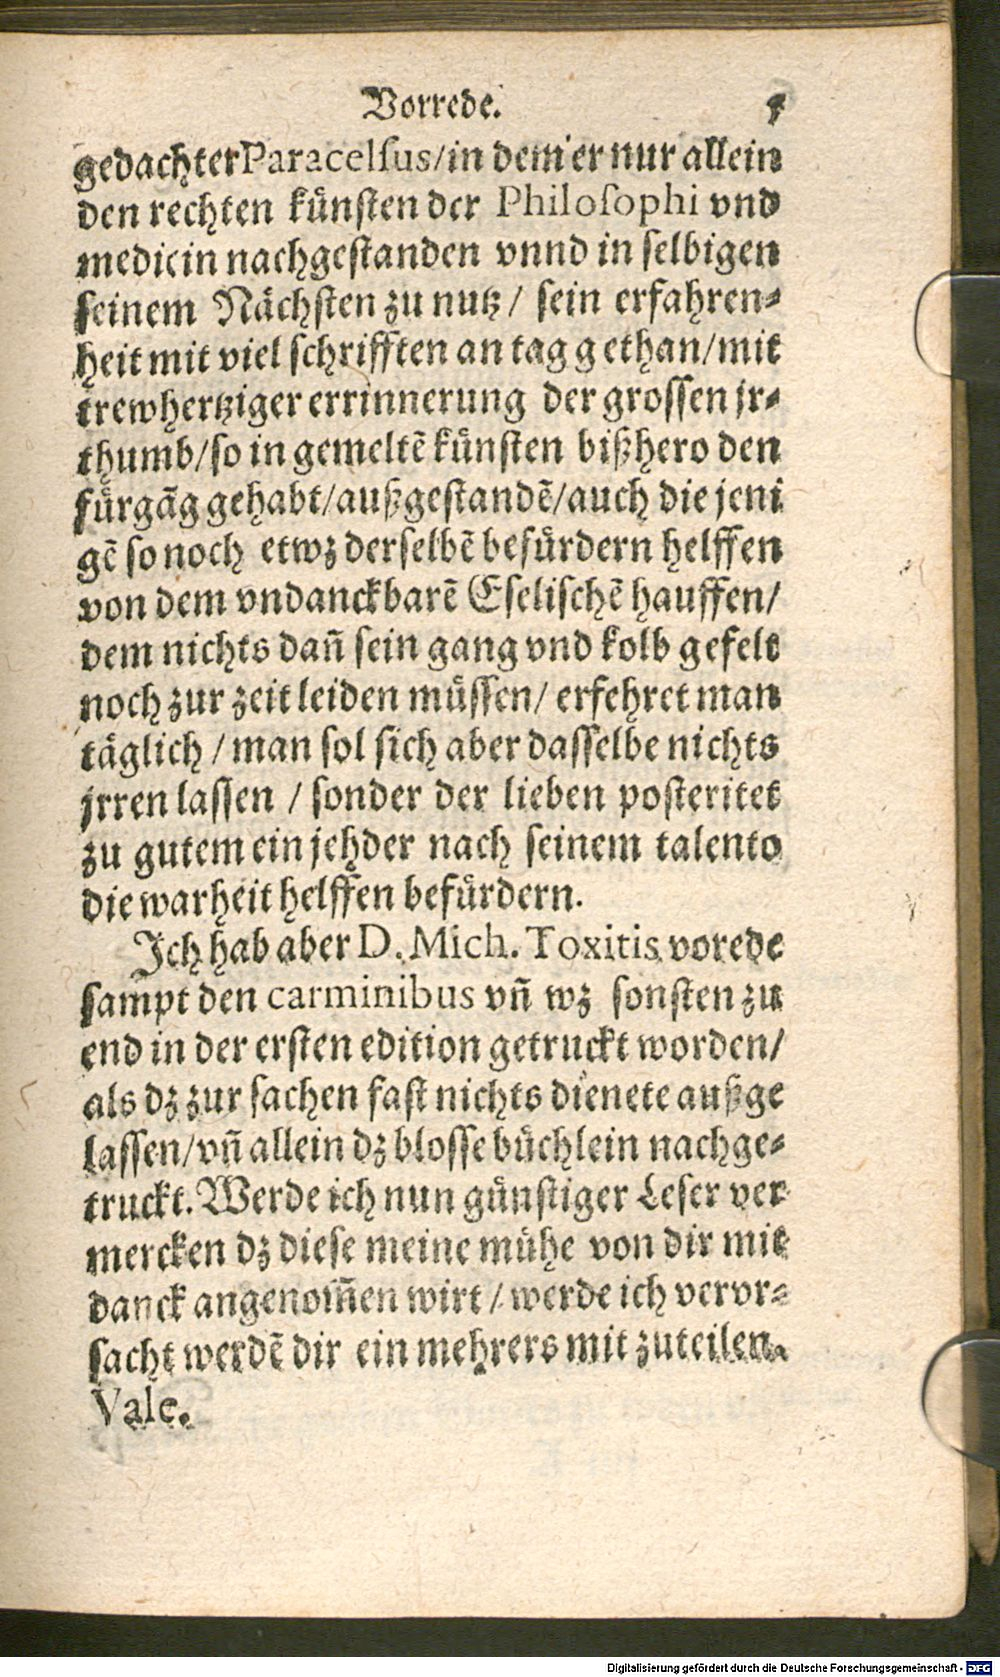 Vorrede. 5
gedachter Paracelſus/in dem er nur allein
den rechten künſten der Philoſophi vnd
medicin nachgeſtanden vnnd in ſelbigen
ſeinem Nächſten zu nutz/ ſein erfahren⸗
heit mit viel ſchrifften an tag gethan/mit
trewhertziger errinnerung der groſſen jr⸗
thumb/ſo in gemeltē künſten bißhero den
fürgãg gehabt/außgeſtandē/auch die jeni
gē ſo noch etwz derſelbē befürdern helffen
von dem vndanckbarē Eſeliſchē hauffen/
dem nichts dañ ſein gang vnd kolb gefelt
noch zur zeit leiden müſſen/ erfehret man
täglich / man ſol ſich aber daſſelbe nichts
jrren laſſen / ſonder der lieben poſteritet
zu gutem ein jehder nach ſeinem talento
die warheit helffen befürdern.
Ich hab aber D. Mich. Toxitis vorede
ſampt den carminibus vñ wz ſonſten zu
end in der erſten edition getruckt worden/
als dz zur ſachen faſt nichts dienete außge
laſſen/vñ allein dz bloſſe büchlein nachge⸗
truckt. Werde ich nun günſtiger Leſer ver
mercken dz dieſe meine mühe von dir mit
danck angenom̃en wirt / werde ich vervr⸗
ſacht werdē dir ein mehrers mit zuteilen.
Vale.
Digitalisierung gefördert durch die Deutsche Forschungsgemeinschaft - DFG